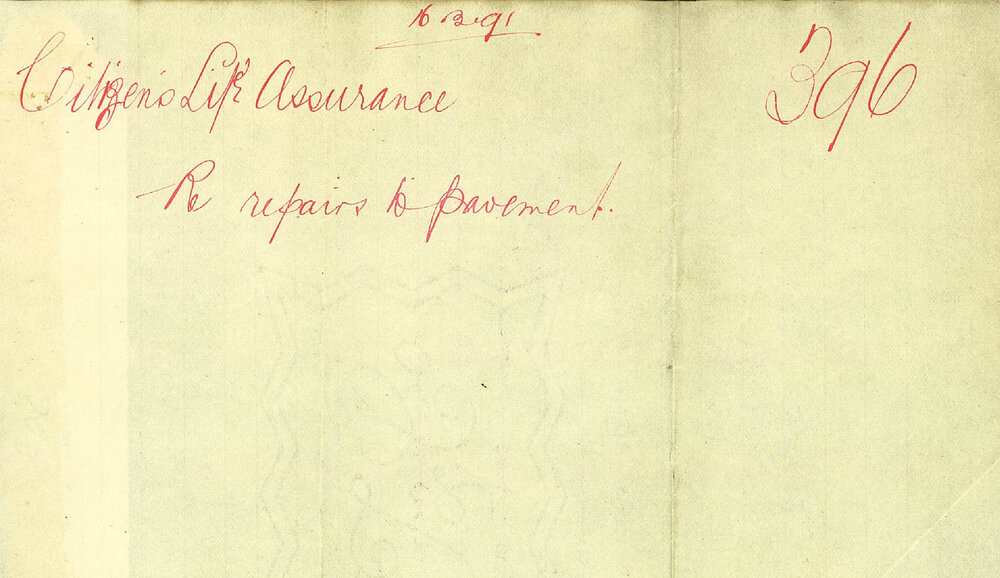 16.2.91
Citizens Life Assurance
396
Re repairs to pavement.